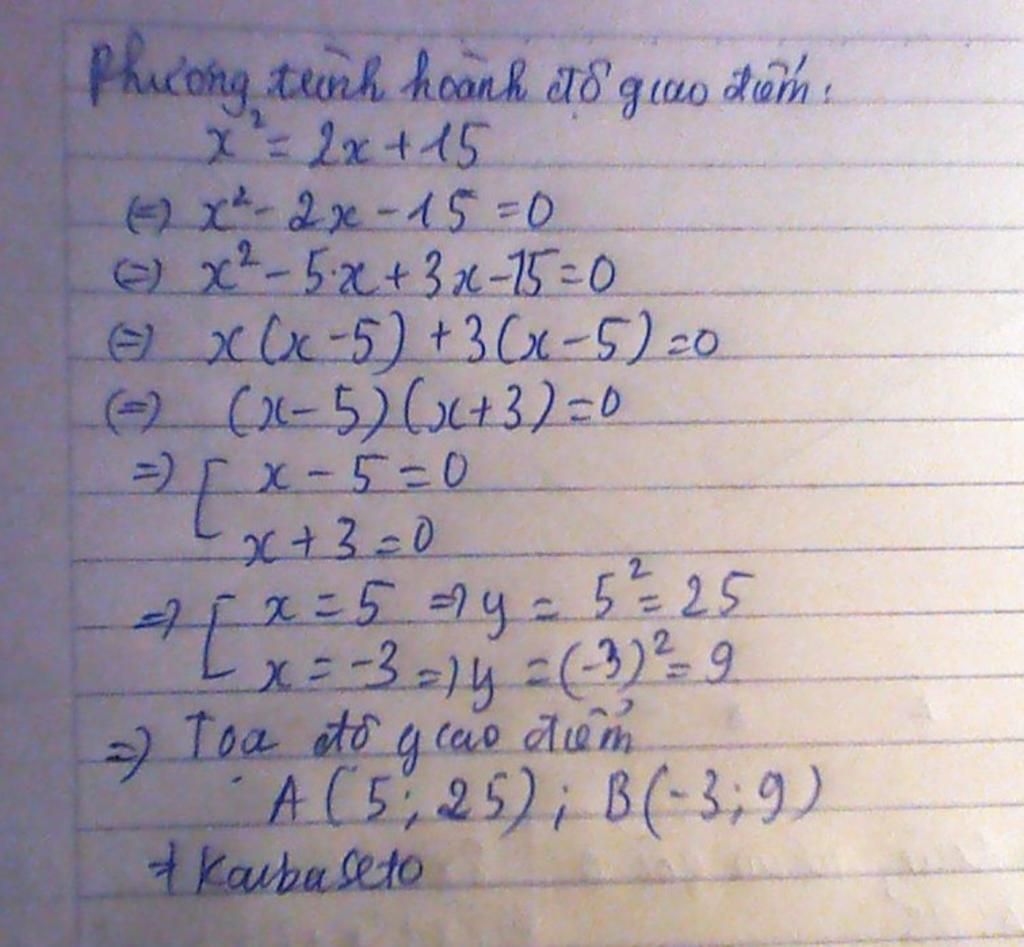 Phương trình hoành độ giao điểm:
x² = 2x + 15
(=) x² - 2x - 15 = 0
(=) x² - 5x + 3x - 15 = 0
(=) x(x - 5) + 3(x - 5) = 0
(=) (x - 5)(x + 3) = 0
=) [ x - 5 = 0
x + 3 = 0
=) [ x = 5 =) y = 5² = 25
x = -3 =) y = (-3)² = 9
=) Toạ độ giao điểm
A(5; 25); B(-3; 9)
+ Kaibaseto